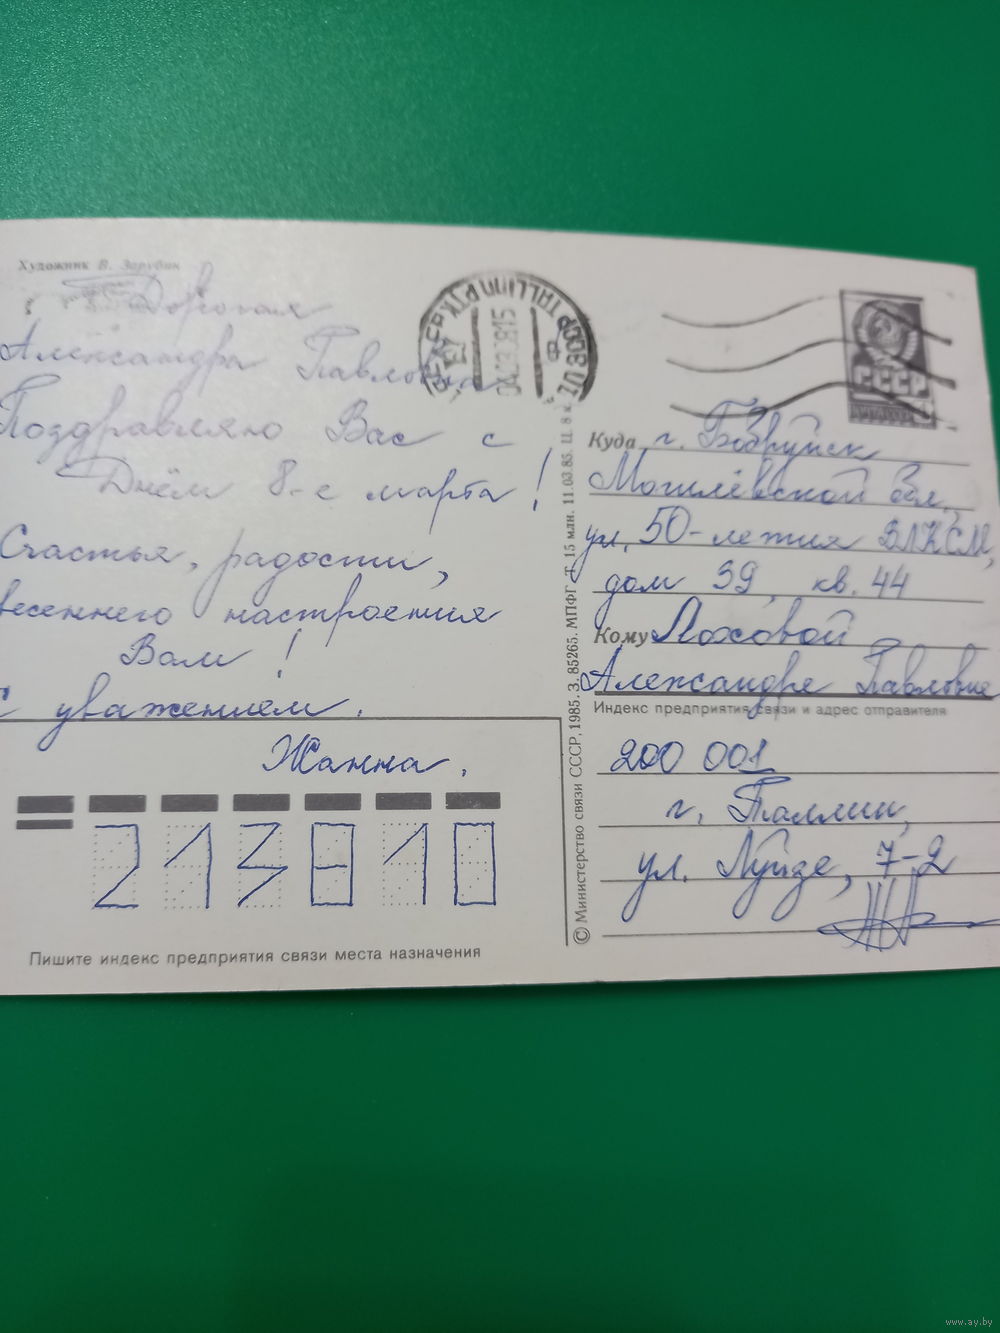 Художник В. Зарубин
Дорогая
Александра Павловна
Поздравляю Вас с
Днём 8-е марта!
Счастья, радости,
весеннего настроения
Вам!
С уважением.
Жанна.
213810
Пишите индекс предприятия связи места назначения
© Министерство связи СССР, 1985. З. 85265. МПФГ Т. 15 млн. 11.03.85. Ц. 8 к.
TALLINN PTK
СССР
Куда г. Бобруйск
Могилёвской обл.,
ул. 50-летия ВЛКСМ,
дом 39, кв. 44
Кому Лоховой
Александре Павловне
Индекс предприятия связи и адрес отправителя
200 001
г. Таллин,
ул. Луйзе, 7-2
www.ay.by